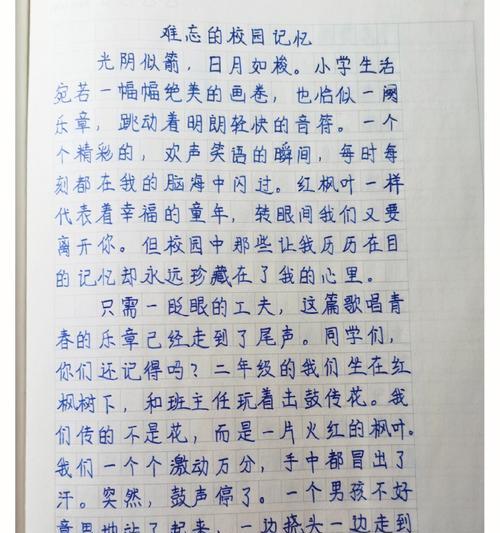 难忘的校园记忆
光阴似箭，日月如梭。小学生活
宛若一幅幅绝美的画卷，也恰似一阕
乐章，跳动着明朗轻快的音符。一个
个精彩的，欢声笑语的瞬间，每时每
刻都在我的脑海中闪过。红枫叶一样
代表着幸福的童年，转眼间我们又要
离开你。但校园中那些让我历历在目
的记忆却永远珍藏在了我的心里。
只需一眨眼的工夫，这篇歌唱青
春的乐章已经走到了尾声。同学们，
你们还记得吗？二年级的我们坐在红
枫树下，和班主任玩着击鼓传花。我
们传的不是花，而是一片火红的枫叶。
我们一个个激动万分，手中都冒出了
汗。突然，鼓声停了。一个男孩不好
意思地站了起来，一边挠头一边走到